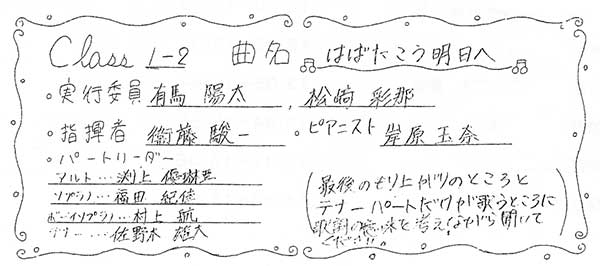 Class 1-2 曲名 はばたこう明日へ
・実行委員 有馬 陽太, 松崎 彩那
・指揮者 衛藤 駿一 ・ピアニスト 岸原 玉奈
・パートリーダー
アルト…渕上 優瑚
ソプラノ…福田 紀佳
ボーイソプラノ…村上 航
テナー…佐野木 雄大
(最後のもり上がりのところと
テナーパートだけが歌うところに
歌詞の意味を考えながら聞いて
ください!!)